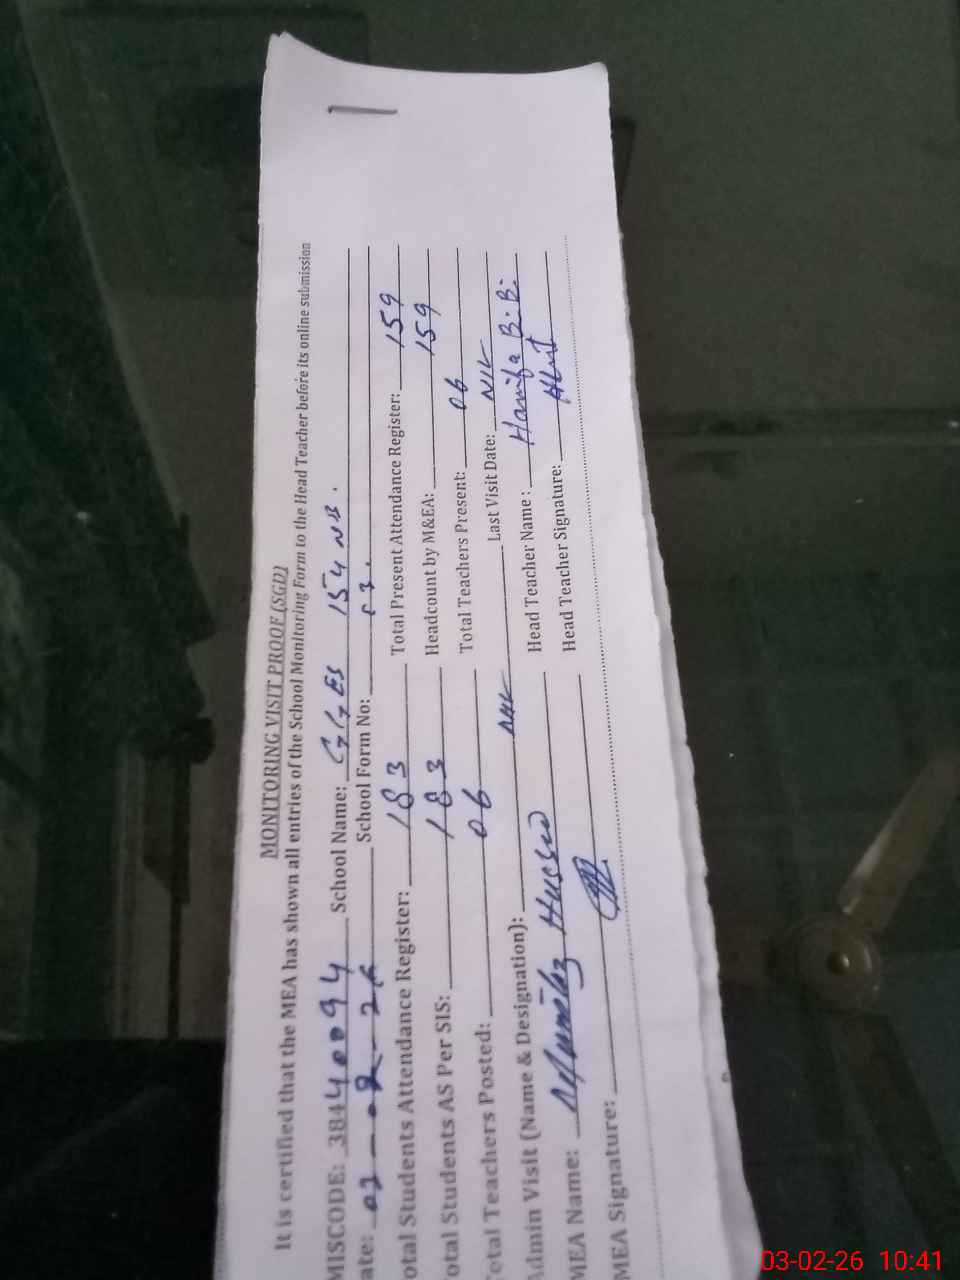 MONITORING VISIT PROOF (SGD)
It is certified that the MEA has shown all entries of the School Monitoring Form to the Head Teacher before its online submission
MISCODE: 38440094 School Name: GGES 154 NB.
ate: 02-26 School Form No:
otal Students Attendance Register: 183 Total Present Attendance Register: 159
otal Students AS Per SIS: 183 Headcount by M&EA: 159
otal Teachers Posted: 06 Total Teachers Present: 06
Admin Visit (Name & Designation): Last Visit Date: NIL
MEA Name: Mumtaz Head Teacher Name: Hanifa B.B.
MEA Signature: Head Teacher Signature:
03-02-26 10:41